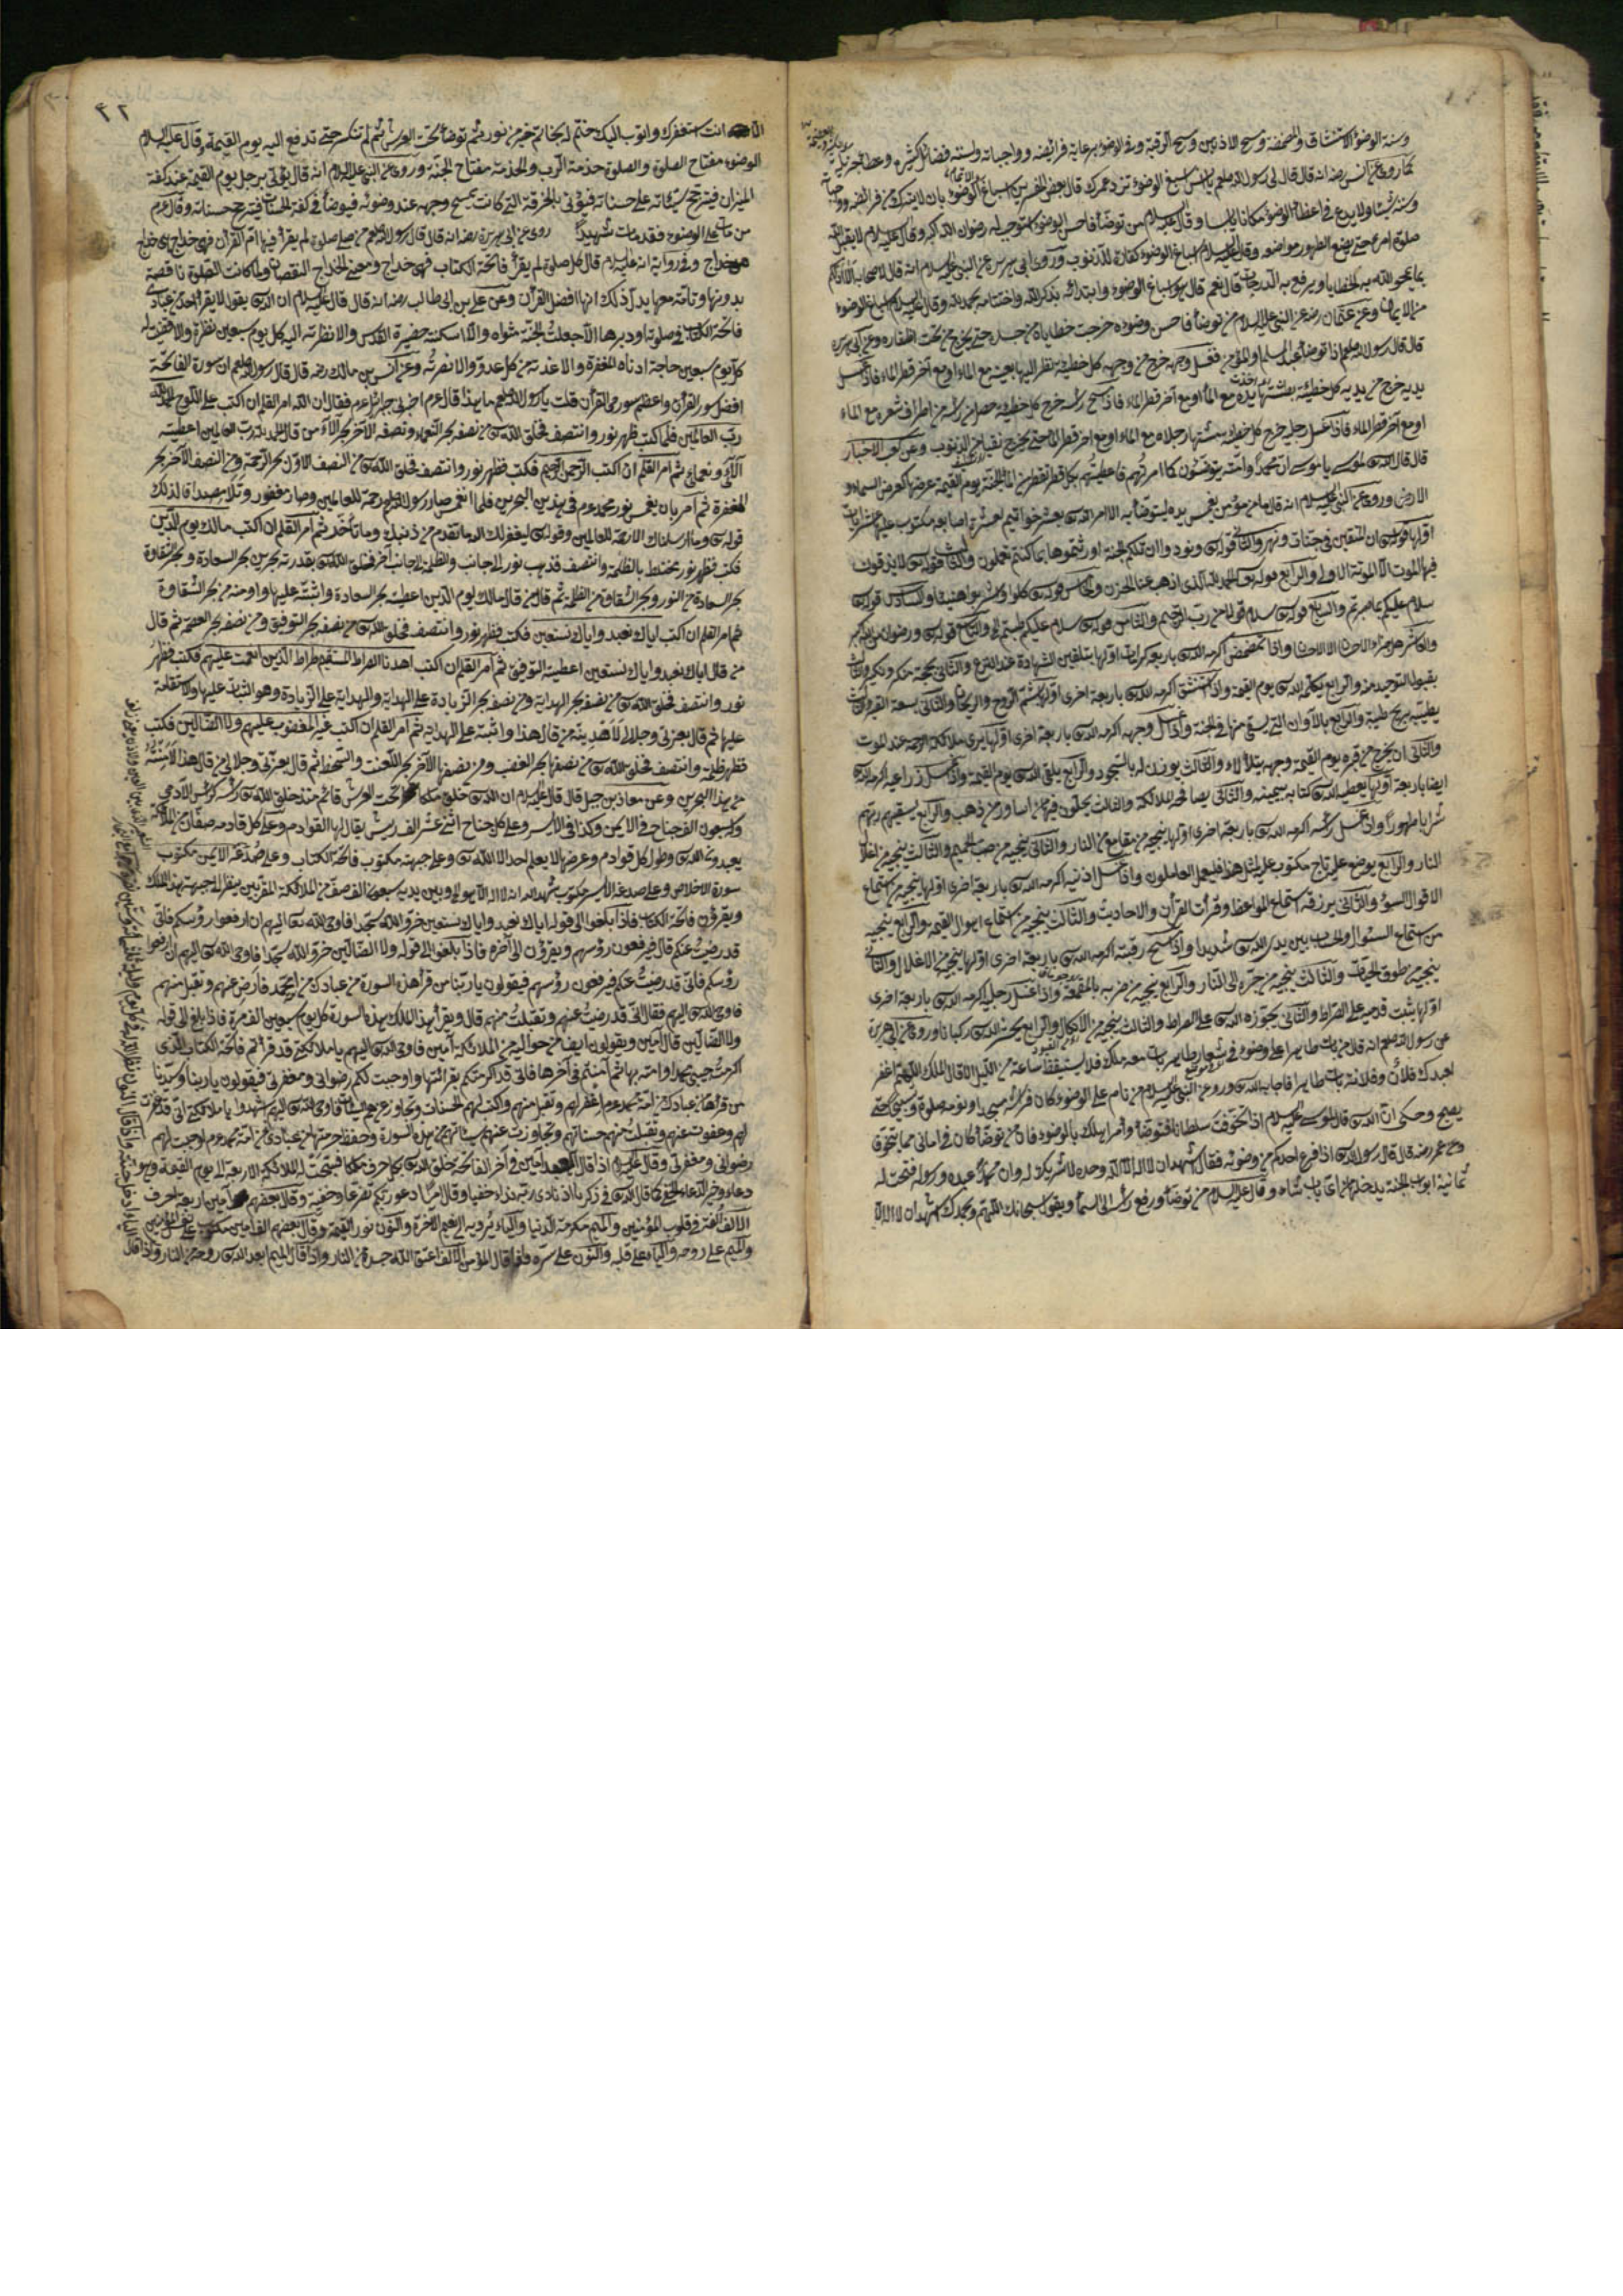 وسنة الوضوء الاستنشاق والمضمضة ومسح الاذنين ومسح الرقبة وفي الوضوء برعاية فرائضه وواجباته وسننه فضائل كثيرة وعطاء جزيلة
كما روى عن انس رضه انه قال قال لى رسول الله صلعم يا انس اسبغ الوضوء تزد عمرك قال بعض المفسرين اسباغ الوضوء بان لا يترك من فرائضه
وسننه شيئا ولا يدع في اعضاء الوضوء مكانا يابسا وقال عليه السلام من توضأ فاحسن الوضوء استوجب له رضوان الله اكبر وقال عليه السلام لا يقبل الله
صلوة امرء حتى يضع الطهور مواضعه وقال عليه السلام اسباغ الوضوء كفارة للذنوب وروى ابي هريرة عن النبي عليه السلام انه قال لاصحابه الا ادلكم
بما يمحو الله به الخطايا ويرفع به الدرجات قال نعم قال هو اسباغ الوضوء وابتدائه بذكر الله واختتامه بحمد الله وقال عليه السلام اسباغ الوضوء
من الايمان وعن عثمان رضه عن النبي عليه السلام من توضأ فاحسن وضوءه خرجت خطاياه من جسده حتى يخرج من تحت اظفاره وعن ابي هريرة
قال قال رسول الله صلعم اذا توضأ العبد المسلم او المؤمن فغسل وجهه خرج من وجهه كل خطيئة نظر اليها بعينه مع الماء او مع آخر قطر الماء فاذا غسل
يديه خرج من يديه كل خطيئة بطشتها يده مع الماء او مع آخر قطر الماء فاذا مسح رأسه خرج كل خطيئة من رأسه من اطراف شعره مع الماء
او مع آخر قطر الماء فاذا غسل رجليه خرج كل خطيئة مشته رجلاه مع الماء او مع آخر قطر الماء حتى يخرج نقيا من الذنوب وعن كعب الاخبار
قال قال الله تع لموسى يا موسى ان محمدا وامته يتوضئون كما امرتهم فاعطيتهم بكل قطر تقطر من الماء الجنة يوم القيمة عرضها كعرض السماء و
الارض وروى عن النبي عليه السلام انه قال ما من مؤمن يغمس يده ليتوضأ به الا امر الله تع بعشر خواتيم لعشرة اصابعه مكتوب عليها عشر ايات
اولها قوله تع ان المتقين في جنات ونهر والثانى قوله تع ونودوا ان تلكم الجنة اورثتموها بما كنتم تعملون والثالث قوله تع لا يذوقون
فيها الموت الا الموتة الاولى والرابع قوله تع الحمد لله الذى اذهب عنا الحزن والخامس قوله تع كلوا واشربوا هنيئا والسادس قوله تع
سلام عليكم بما صبرتم والسابع قوله تع سلام قولا من رب الرحيم والثامن قوله تع سلام عليكم طبتم والتاسع قوله تع ورضوان من الله اكبر
والعاشر هل جزاء الاحسان الا الاحسان واذا تمضمض اكرمه الله تع باربعة كرامات اولها بتلقين الشهادة عند النزع والثانى بحجة منكر ونكير والثالث
بقبول التوحيد منه والرابع يكلم الله تع يوم القيمة واذا استنشق اكرمه الله تع باربعة اخرى اولها يشتم الروح والريحان والثانى بسعة القبر والثالث
يطيبه بريح طيبة والرابع بالاوان التى يسقى منها في الجنة واذا غسل وجهه اكرمه الله تع باربعة اخرى اولها يرى ملائكة الرحمة عند الموت
والثانى ان يخرج من قبره يوم القيمة وجهه يتلألاء والثالث يؤذن له بالسجود والرابع يلقى الله تع يوم القيمة واذا غسل ذراعيه اكرمه الله
ايضا باربعة اولها يعطيه الله تع كتابه بيمينه والثانى يصافحه الملائكة والثالث يحلون فيها من اساور من ذهب والرابع يسقيهم ربهم
شرابا طهورا واذا غسل رأسه اكرمه الله تع باربعة اخرى اولها ينجيه من مقامع من النار والثانى ينجيه من صب الحميم والثالث ينجيه من اغلال
النار والرابع يوضع عليه تاج مكتوب عليه لمثل هذا فليعمل العاملون واذا غسل اذنيه اكرمه الله تع باربعة اخرى اولها ينجيه من استماع
الاقوال السوء والثانى يرزقه استماع المواعظ وقرأت القرآن والاحاديث والثالث ينجيه من استماع اهوال القيمة والرابع ينجيه
من استماع السؤال والحساب بين يدى الله تع شديدا واذا مسح رقبته اكرمه الله تع باربعة اخرى اولها ينجيه من الاغلال والثانى
ينجيه من طوق الحيات والثالث ينجيه من جره الى النار والرابع ينجيه من ضربه بالمقمعة واذا غسل رجليه اكرمه الله تع باربعة اخرى
اولها يثبت قدميه على الصراط والثانى يجوزه الله تع على الصراط والثالث ينجيه من الانكال والرابع يحشره الله تع ركبانا وروى عن ابي هريرة
عن رسول الله صلعم انه قال من بات طاهرا على وضوء في شعار طاهر بات معه ملك فلا يستيقظ ساعة من الليل الا قال الملك اللهم اغفر
لعبدك فلان وفلانة بات طاهرا فاجابه الله تع وروى عن النبي عليه السلام من نام على الوضوء كان فراشه مسجدا ونومه صلوة وتسبيح حتى
يصبح وحكى ان الله تع قال لموسى عليه السلام اذا تخوفت سلطانا فتوضأ وأمر اهلك بالوضوء فان من توضأ كان في امانى مما يتخوف
وعن عمر رضه قال قال رسول الله تع اذا فرغ احدكم من وضوئه فقال اشهد ان لا اله الا الله وحده لا شريك له وان محمدا عبده ورسوله فتحت له
ثمانية ابواب الجنة يدخلها من اى باب شاء وقال عليه السلام من توضأ ورفع رأسه الى السماء ويقول سبحانك اللهم وبحمدك اشهد ان لا اله الا
٤٢
انت استغفرك واتوب اليك ختم له بخاتم من نور ثم توضأ تحت العرش ثم لم تنكسر حتى تدفع اليه يوم القيمة وقال عليه السلام
الوضوء مفتاح الصلوة والصلوة خدمة الرب والخدمة مفتاح الجنة وروى عن النبي عليه السلام انه قال يؤتى برجل يوم القيمة عند كفة
الميزان فيترجح سيئاته على حسناته فيؤتى بالخرقة التى كانت يمسح وجهه عند وضوئه فيوضع في كفة الحسنات فيترجح حسناته وقال عم
من مات على الوضوء فقد مات شهيدا روى عن ابي هريرة رضه انه قال قال رسول الله صلعم من صلى صلوة لم يقرأ فيها ام القرآن فهى خداج هى خداج
هى خداج وفي رواية انه عليه السلام قال كل صلوة لم يقرأ فاتحة الكتاب فهى خداج ومعنى الخداج النقصان ولما كانت الصلوة ناقصة
بدونها وتامة معها يدل ذلك انها افضل القرآن وعن على بن ابى طالب رضه انه قال قال عليه السلام ان الله تع يقول لا يقرأ احد من عبادى
فاتحة الكتاب في صلوته او دبرها الا جعلت الجنة مثواه والا اسكنته حضيرة القدس والا نظرته اليه كل يوم سبعين نظرة والا قضيت له
كل يوم سبعين حاجة ادناه المغفرة والا اعذته من كل عدو والا نصرته وعن انس بن مالك رضه قال قال رسول الله صلعم ان سورة الفاتحة
افضل سور القرآن واعظم سور القرآن قلت يا رسول الله صلعم ما هذا قال عم اخبرنى جبرائل عم فقال ان الله امر القلم ان اكتب على اللوح الحمد لله
رب العالمين فلما كتب ظهر نور وانتصف فخلق الله تع من نصفه بحر النعماء ونصفه الآخر بحر الآلاء من قال الحمد لله رب العالمين اعطيته
آلائى ونعمائى ثم امر القلم ان اكتب الرحمن الرحيم فكتب فظهر نور وانتصف فخلق الله تع من النصف الاول بحر الرحمة ومن النصف الآخر بحر
المغفرة ثم أمر بان يغمس نور محمد عم في هذين البحرين فلما انغمس صار رسول الله رحمة للعالمين وصار غفور وتلا مصداقا لذلك
قوله تع وما ارسلناك الا رحمة للعالمين وقوله تع ليغفر لك الله ما تقدم من ذنبك وما تأخر ثم أمر القلم ان اكتب مالك يوم الدين
فكتب فظهر نور مختلط بالظلمة وانتصف فذهب نور الى جانب والظلمة الى جانب آخر فخلق الله تع بقدرته بحرين بحر السعادة وبحر الشقاوة
بحر السعادة من النور وبحر الشقاوة من الظلمة ثم قال من قال مالك يوم الدين اعطيته بحر السعادة واثبته عليها وامنه من بحر الشقاوة
ثم امر القلم ان اكتب اياك نعبد واياك نستعين فكتب فظهر نور وانتصف فخلق الله تع من نصفه بحر التوفيق ومن نصف بحر العصمة ثم قال
من قال اياك نعبد واياك نستعين اعطيته التوفيق ثم أمر القلم ان اكتب اهدنا الصراط المستقيم صراط الذين انعمت عليهم فكتب فظهر
نور وانتصف فخلق الله تع من نصفه بحر الهداية ومن نصفه بحر الزيادة على الهداية والهداية على الزيادة وهو الثبات عليها والاستقامة
عليها ثم قال بعزتى وجلالى لاهدينه من قال هذا واثبته على الهداية ثم أمر القلم ان اكتب غير المغضوب عليهم ولا الضالين فكتب
فظهر ظلمة وانتصف فخلق الله تع من نصفها بحر الغضب ومن نصفها الآخر بحر اللعنة والسخط ثم قال بعزتى وجلالى من قال هذا لآمنته
من هذا البحرين وعن معاذ بن جبل قال قال عليه السلام ان الله تع خلق ملكا تحت العرش قائم منذ خلق الله تع رأسه كرأس الآدمى
وله سبعون الف جناح في الايمن وكذا في الايسر وعلى كل جناح اثنى عشر الف ريش يقال لها القوادم وعلى كل قادمه صفان من الملائكة
يعبدون الله تع وطول كل قوادم وعرضها لا يعلم احد الا الله تع وعلى جبهته مكتوب فاتحة الكتاب وعلى صدغه الايمن مكتوب
سورة الاخلاص وعلى صدغه الايسر مكتوب شهد الله انه لا اله الا هو وبين يديه سبعون الف صف من الملائكة المقربين ينظر الى جبهة هذا الملك
ويقرؤن فاتحة الكتاب فاذا بلغوا الى قوله اياك نعبد واياك نستعين خروا لله سجدا فاوحى الله تعا اليهم ان ارفعوا رؤسكم فانى
قد رضيت عنكم قال فيرفعون رؤسهم ويقرؤن الى آخره فاذا بلغوا الى قوله ولا الضالين خروا لله سجدا فاوحى الله تع اليهم ان ارفعوا
رؤسكم فانى قد رضيت عنكم فيرفعون رؤسهم فيقولون يا ربنا من قرأ هذه السورة من عبادك من امة محمد فارض عنهم وتقبل منهم
فاوحى الله تع اليهم فقال انى قد رضيت عنهم وتقبلت منهم قال ويقرأ هذا الملك هذه السورة كل يوم سبعين الف مرة فاذا بلغ الى قوله
ولا الضالين قال آمين ويقولون ايضا من حواليه من الملائكة آمين فاوحى الله تع اليهم يا ملائكتى قد قرأتم فاتحة الكتاب الذى
اكرمت حبيبى محمدا وامته بها ثم آمنتم في آخرها فانى قد اكرمتكم بقرائتها واوجبت لكم رضوانى ومغفرتى فيقولون يا ربنا وسيدنا
من قرأها من عبادك من امة محمد عم اغفر لهم وتقبل منهم واكتب لهم الحسنات وتجاوز عنهم السيئات فاوحى الله تع اليهم اشهدوا يا ملائكتى انى قد غفرت
لهم وعفوت عنهم وتقبلت منهم حسناتهم وتجاوزت عنهم سيئاتهم من هذه السورة وحفظ حرمتها من عبادى من امة محمد عم اوجبت لهم
رضوانى ومغفرتى وقال عليه السلام اذا قال العبد آمين في آخر الفاتحة خلق الله تع بكل حرف ملكا
دعاء وخير الدعاء الخفى كما قال الله تع في زكريا اذ نادى ربه نداء خفيا وقال ادعوا ربكم تضرعا وخفية وقال بعضهم آمين اربعة احرف
الالف الفة في قلوب المؤمنين والميم مكرمة الدنيا والياء والنون نور القيمة وقال بعضهم
والميم على روحه والياء على قلبه والنون على سره فاذا قال المؤمن الالف اعتق الله جسده من النار واذا قال الميم ابعد الله تع روحه من النار واذا قال